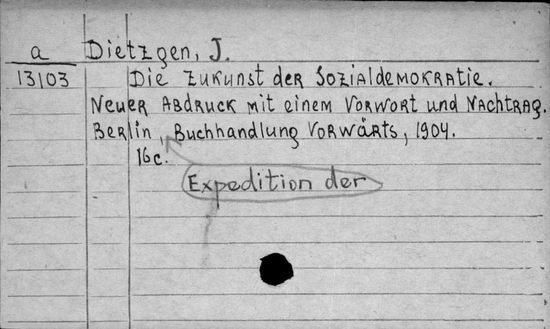 a Dietzgen, J.
13103 Die Zukunst der Sozialdemokratie.
Neuer Abdruck mit einem Vorwort und Nachtrag.
Berlin, Buchhandlung Vorwärts, 1904.
16c.
Expedition der